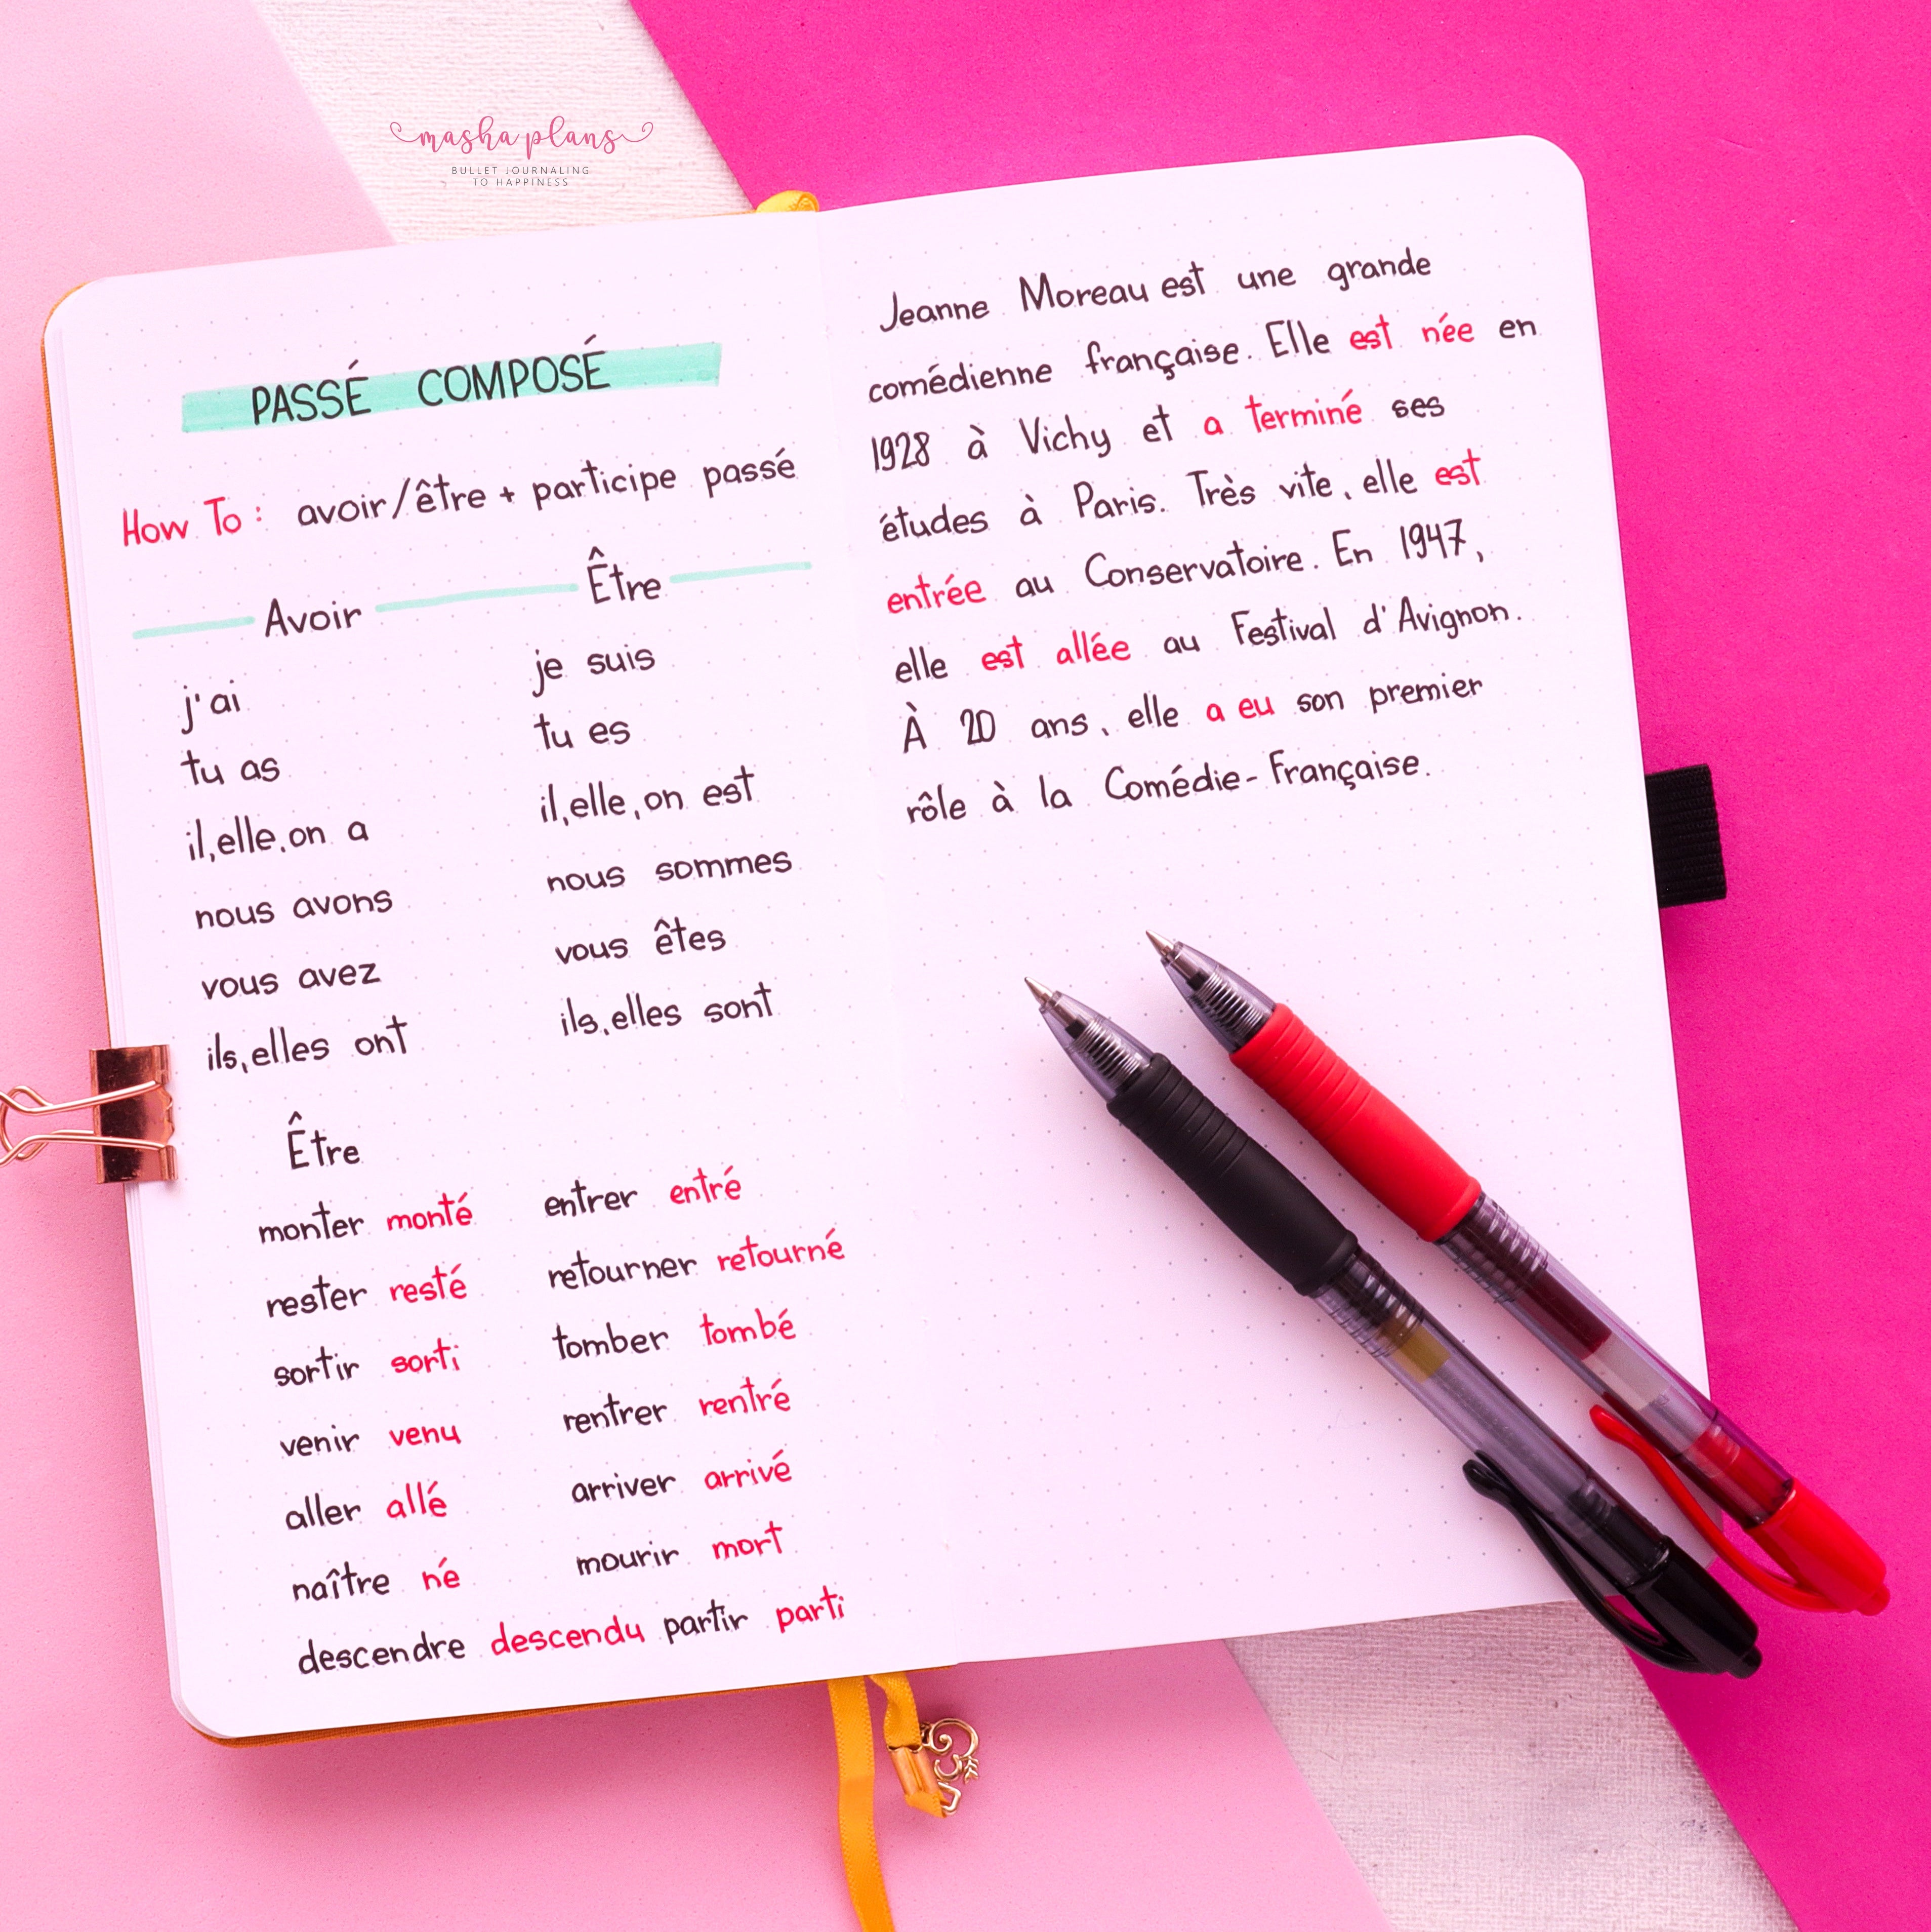 masha plans
BULLET JOURNALING
TO HAPPINESS
PASSÉ COMPOSÉ
How To: avoir/être + participe passé
Avoir Être
j'ai je suis
tu as tu es
il, elle, on a il, elle, on est
nous avons nous sommes
vous avez vous êtes
ils, elles ont ils, elles sont
Être
monter monté entrer entré
rester resté retourner retourné
sortir sorti tomber tombé
venir venu rentrer rentré
aller allé arriver arrivé
naître né mourir mort
descendre descendu partir parti
Jeanne Moreau est une grande
comédienne française. Elle est née en
1928 à Vichy et a terminé ses
études à Paris. Très vite, elle est
entrée au Conservatoire. En 1947,
elle est allée au Festival d'Avignon.
À 20 ans, elle a eu son premier
rôle à la Comédie-Française.